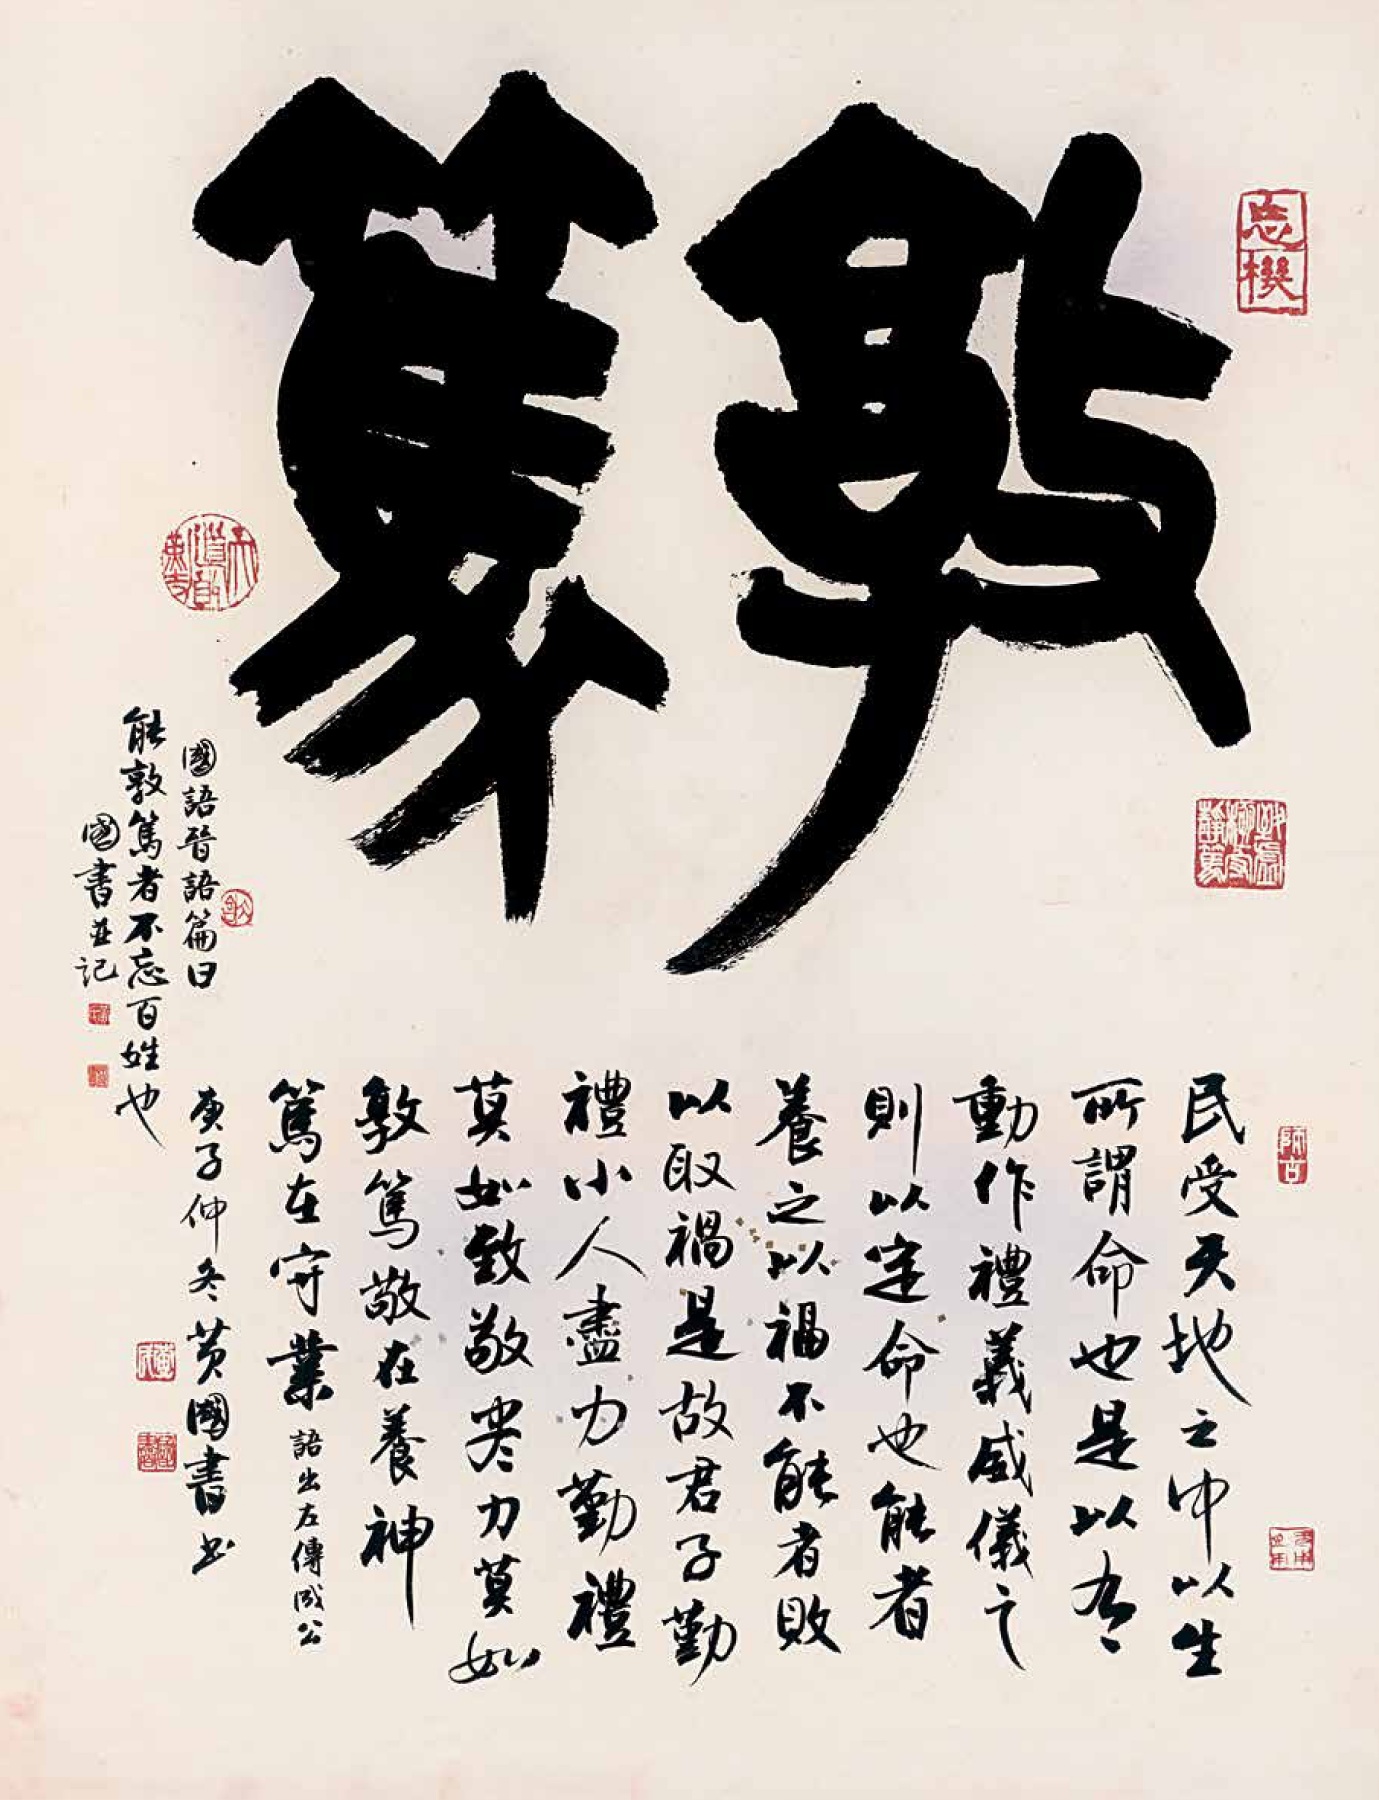 敦篤
民受天地之中以生
所謂命也是以有
動作禮義威儀之
則以定命也能者
養之以福不能者敗
以取禍是故君子勤
禮小人盡力勤禮
莫如致敬盡力莫如
敦篤敬在養神
篤在守業語出左傳成公
庚子仲冬黃國書書
國語晉語篇曰
能敦篤者不忘百姓也
國書並記
忘機